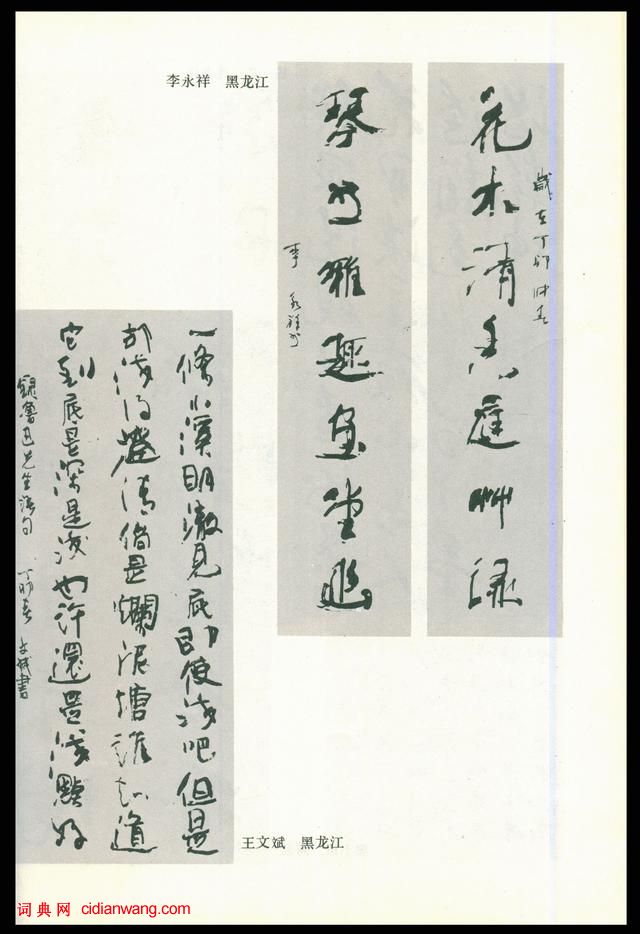 李永祥 黑龙江
花木清香庭艸绿
歲在丁卯仲春
琴书雅趣画堂幽
李永祥书
一條小溪明澈見底即使浅吧但是
却浅得澄清倘是爛泥塘誰知道
它到底是深是浅也许還是浅點好
錄魯迅先生语句 丁卯春 文斌書
王文斌 黑龙江
词典网 cidianwang.com